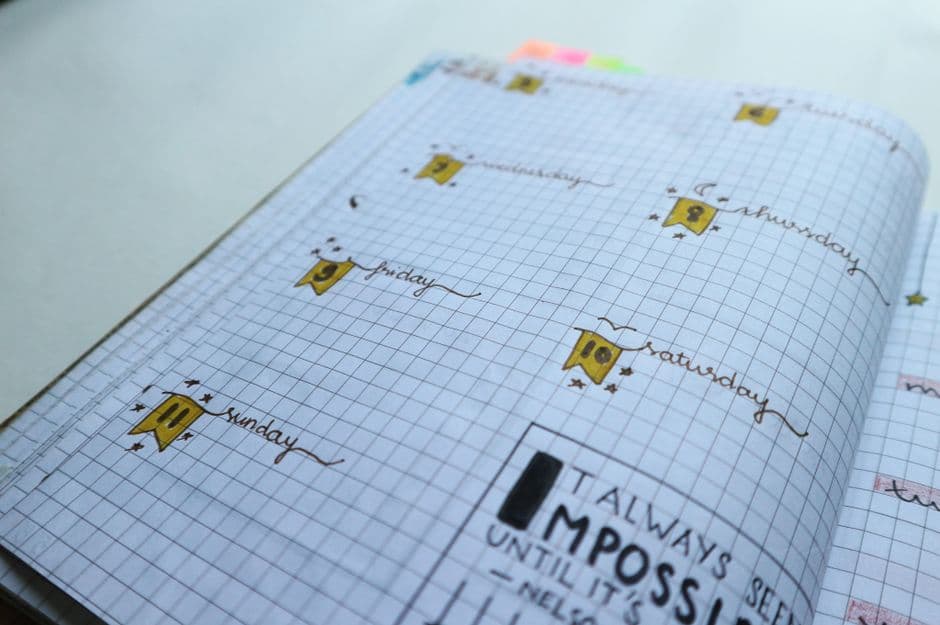 6 tuesday
7 wednesday
8 thursday
9 friday
10 saturday
11 sunday
IT ALWAYS SEEM
IMPOSSI
UNTIL IT'S
– NELSO
m
tu